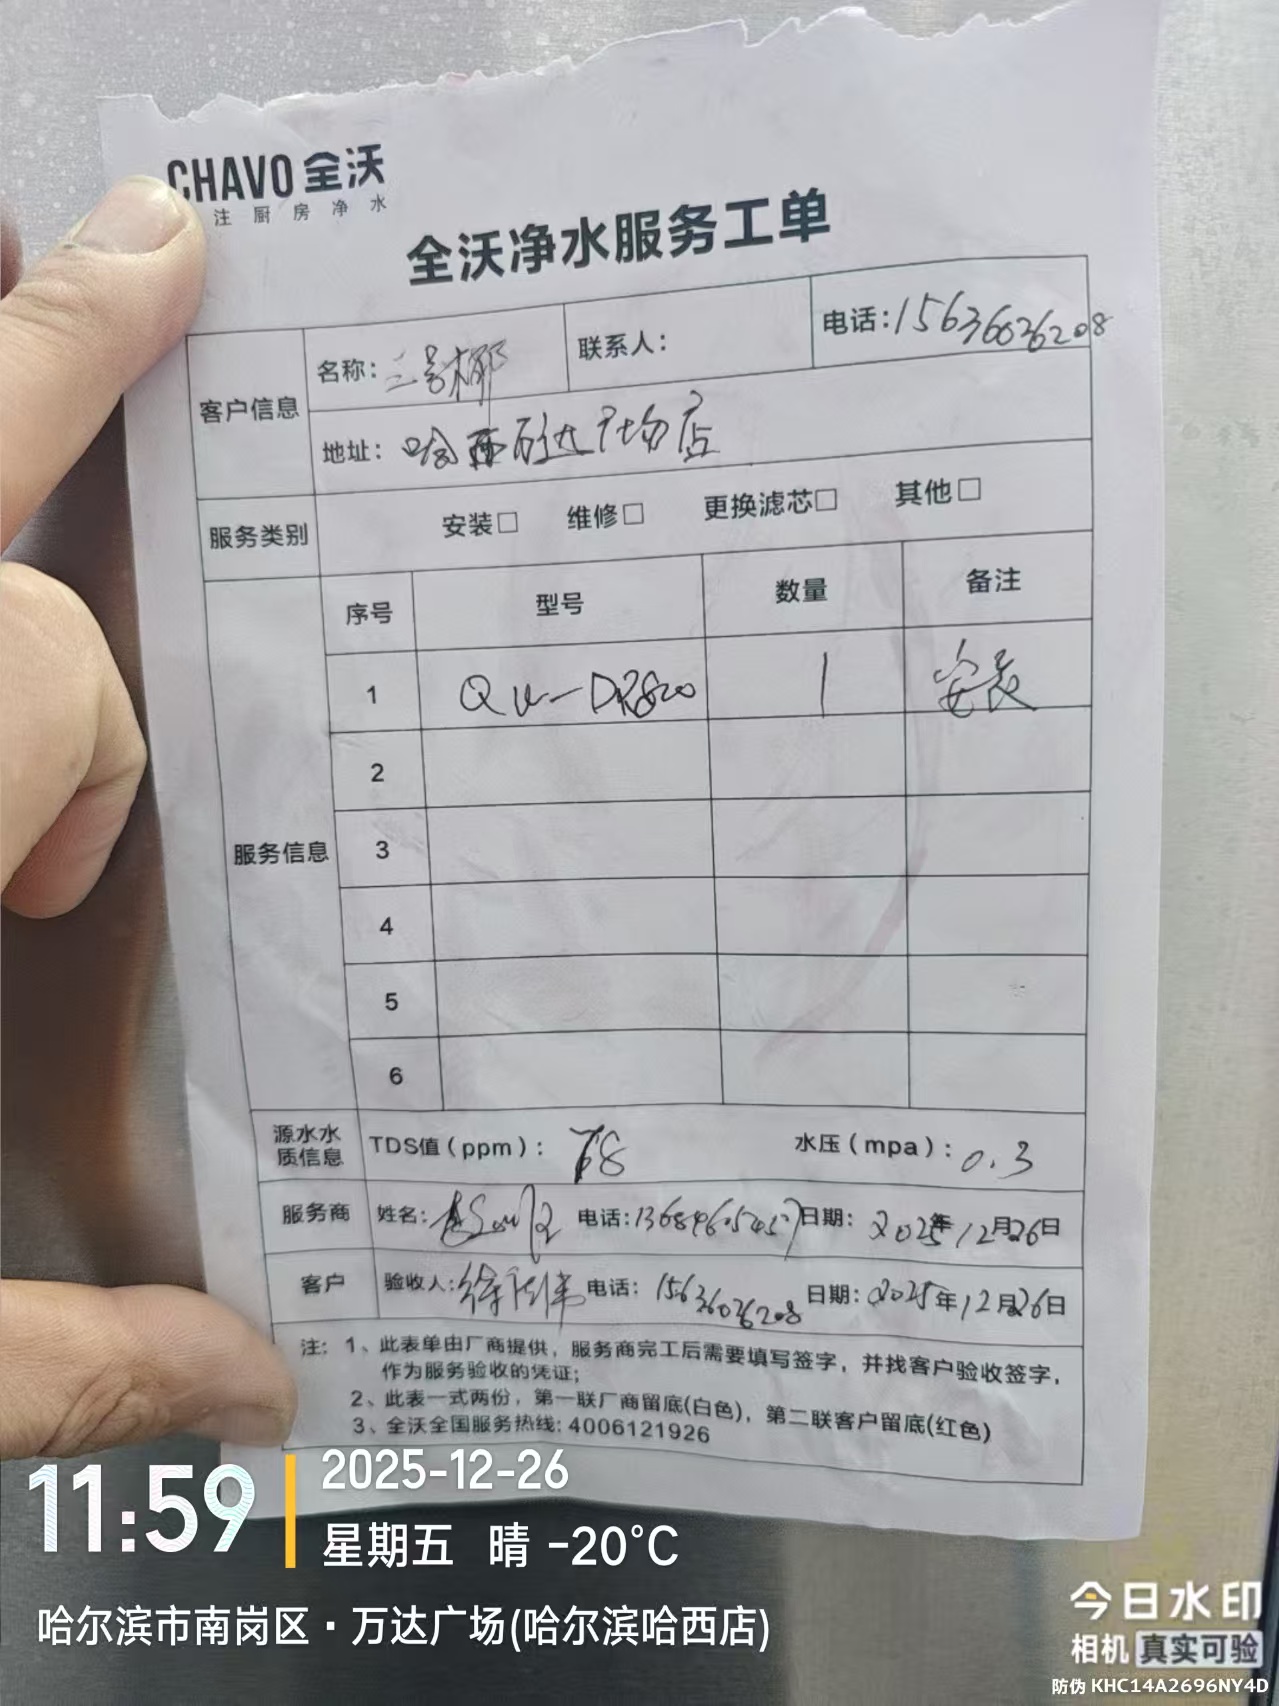 CHAVO 全沃
注厨房净水
全沃净水服务工单
客户信息
名称：三号椰
联系人：
电话：15636036208
地址：哈西万达广场店
服务类别
安装□ 维修□ 更换滤芯□ 其他□
服务信息
序号 型号 数量 备注
1 1 安装
2
3
4
5
6
源水水质信息
TDS值（ppm）：
水压（mpa）：0.3
服务商 姓名： 电话： 日期：2025年12月26日
客户 验收人： 电话：15636036208 日期：2025年12月26日
注：1、此表单由厂商提供，服务商完工后需要填写签字，并找客户验收签字，
作为服务验收的凭证；
2、此表一式两份，第一联厂商留底(白色)，第二联客户留底(红色)
3、全沃全国服务热线：4006121926
11:59
2025-12-26
星期五 晴 -20°C
哈尔滨市南岗区·万达广场(哈尔滨哈西店)
今日水印
相机 真实可验
防伪 KHC14A2696NY4D